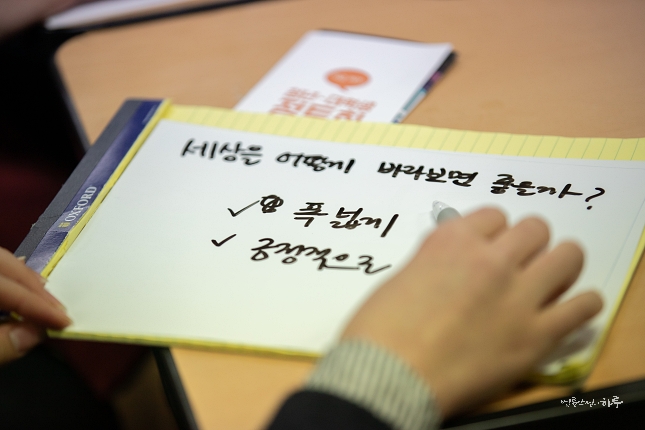 세상을 어떻게 바라보면 좋을까?
✓ 폭 넓게
✓ 긍정적으로
OXFORD